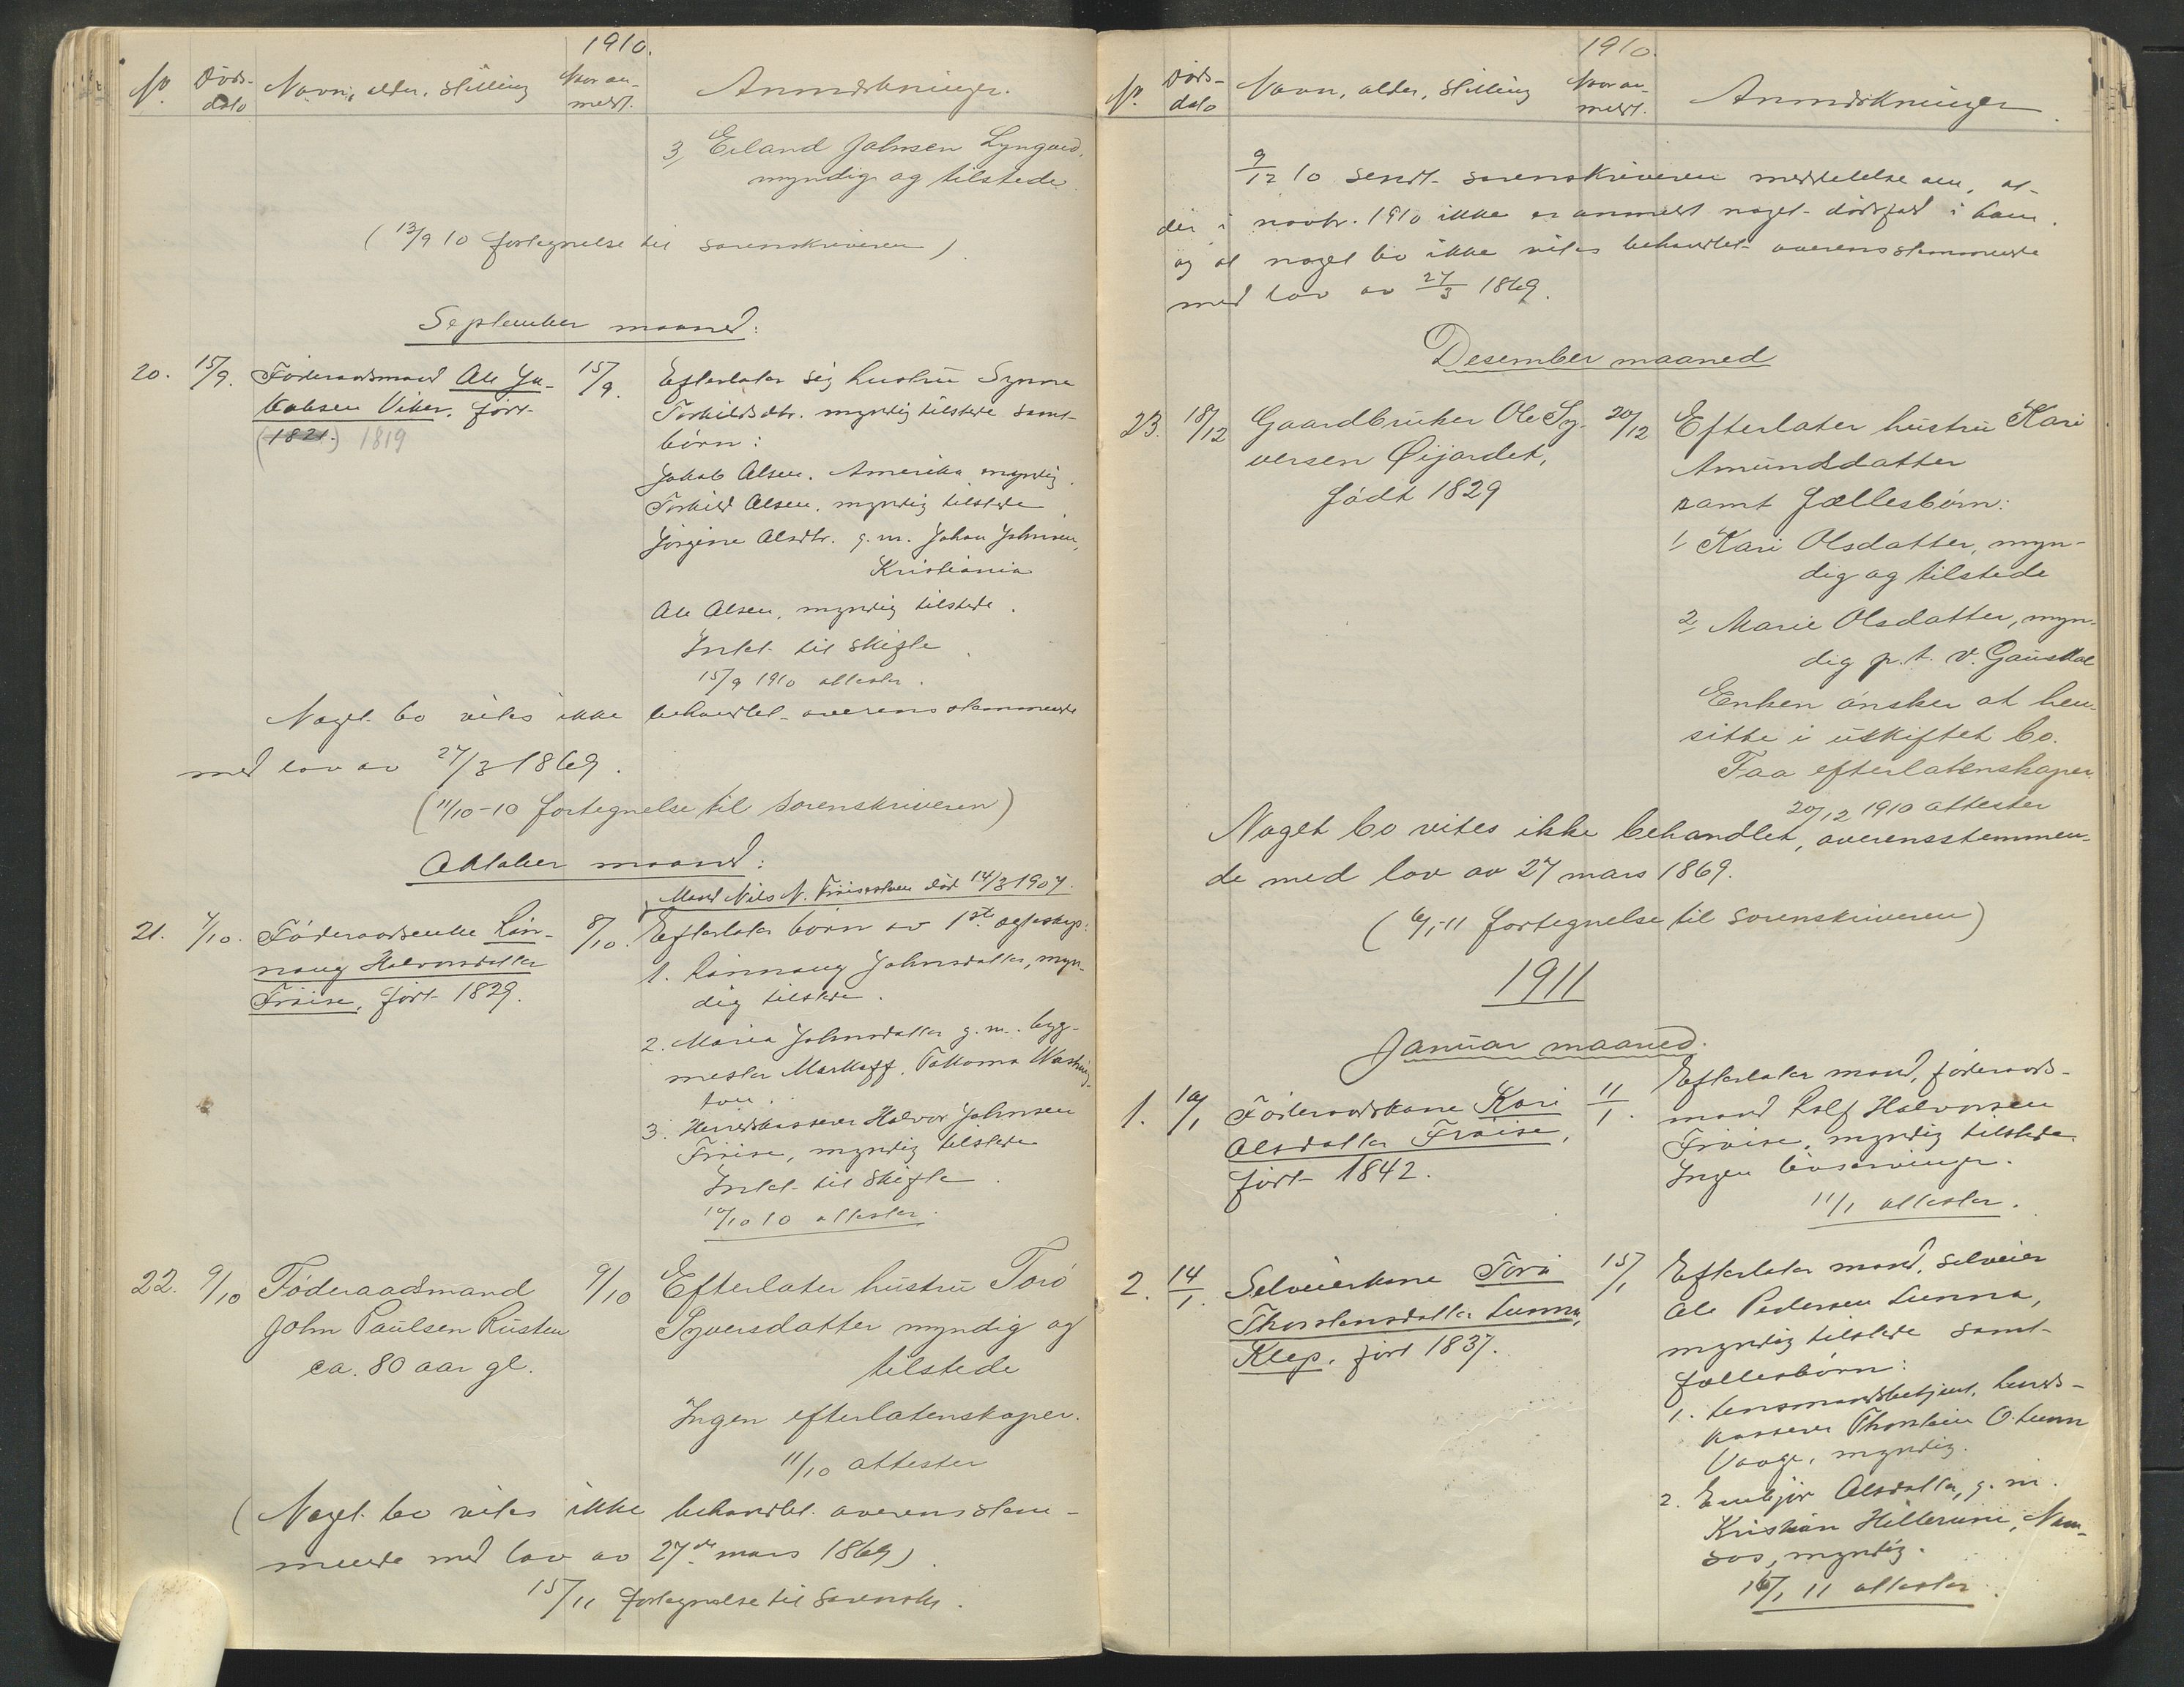 1910.
No. Døds-dato Navn, alder, stilling Naar an-meldt. Anmerkninger.
3, Erland Johnsen Lyngaad,
myndig og tilstede.
(13/9 10 fortegnelse til sorenskriveren).
September maaned:
20. 15/9. Føderaadsmand Ole Ja-
kobsen Viker, født
(1821.) 1819
15/9. Efterlater sig hustru Synna
Torkildsdtr. myndig tilstede samt
børn:
Jakob Olsen, Amerika, myndig.
Torkild Olsen, myndig tilstede
Jørgine Olsdtr. g. m. Johan Johnsen,
Kristiania
Ole Olsen, myndig tilstede.
Intet til skifte.
15/9 1910 attester.
Noget bo vites ikke behandlet overensstemmende
med lov av 27/3 1869.
(11/10-10 fortegnelse til sorenskriveren)
Oktober maaned:
Mand Nils N. død 14/3 1907.
21. 7/10. Føderaadsenke Rön-
naug Halvorsdatter
Frøise, født 1829.
8/10. Efterlater børn av 1ste egteskap:
1. Rønnaug Johnsdatter, myn-
dig tilstede.
2. Maria Johnsdatter g. m. byg-
mester Markaff, Takoma Washing-
ton.
3. Herredskasserer Halvor Johnsen
Frøise, myndig tilstede
Intet til skifte.
10/10 10 attester.
22. 9/10 Føderaadsmand
John Paulsen Rusten
ca. 80 aar gl.
9/10 Efterlater hustru Toro
Syversdatter myndig og
tilstede
Ingen efterlatenskaper.
11/10 attester
(Noget bo vites ikke behandlet overensstem-
mende med lov av 27de mars 1869).
15/11 fortegnelse til sorenskr.
1910.
No. Døds-dato Navn, alder, stilling Naar an-meldt. Anmerkninger.
9/12 10 sendt sorenskriveren meddelelse om, at
der i novbr. 1910 ikke er anmeldt noget dødsfald i
og at noget bo ikke vites behandlet overensstemmende
med lov av 27/3 1869.
Desember maaned
23. 18/12 Gaardbruker Ole Sy-
versen Øijardet,
født 1829
20/12 Efterlater hustru Kari
Amundsdatter
samt fællesbørn:
1, Kari Olsdatter, myn-
dig og tilstede
2, Marie Olsdatter, myn-
dig p. t. V. Gausdal
Enken ønsker at hen-
sitte i uskiftet bo.
Faa efterlatenskaper.
20/12 1910 attester
Noget bo vites ikke behandlet, overensstemmen-
de med lov av 27 mars 1869.
(6/1-11 fortegnelse til sorenskriveren)
1911
Januar maaned.
1. 10/1 Føderaadskone Kari
Olsdatter Frøise,
født 1842.
11/1. Efterlater mand, føderaads-
mand Rolf Halvorsen
Frøise, myndig tilstede.
Ingen livsarvinger.
11/1 attester.
2. 14/1. Selveierkone Torø
Thorstensdatter Lunna,
Klep, født 1837.
15/1 Efterlater mand, selveier
Ole Pedersen Lunna,
myndig tilstede samt
fællesbørn:
1. Lensmandsbetjent, herreds-
kasserer Thorstein O. Lunn
Vaage, myndig.
2. Embjør Olsdatter, g. m.
Kristian Hillerune, Nam-
sos, myndig.
16/1 11 attester.